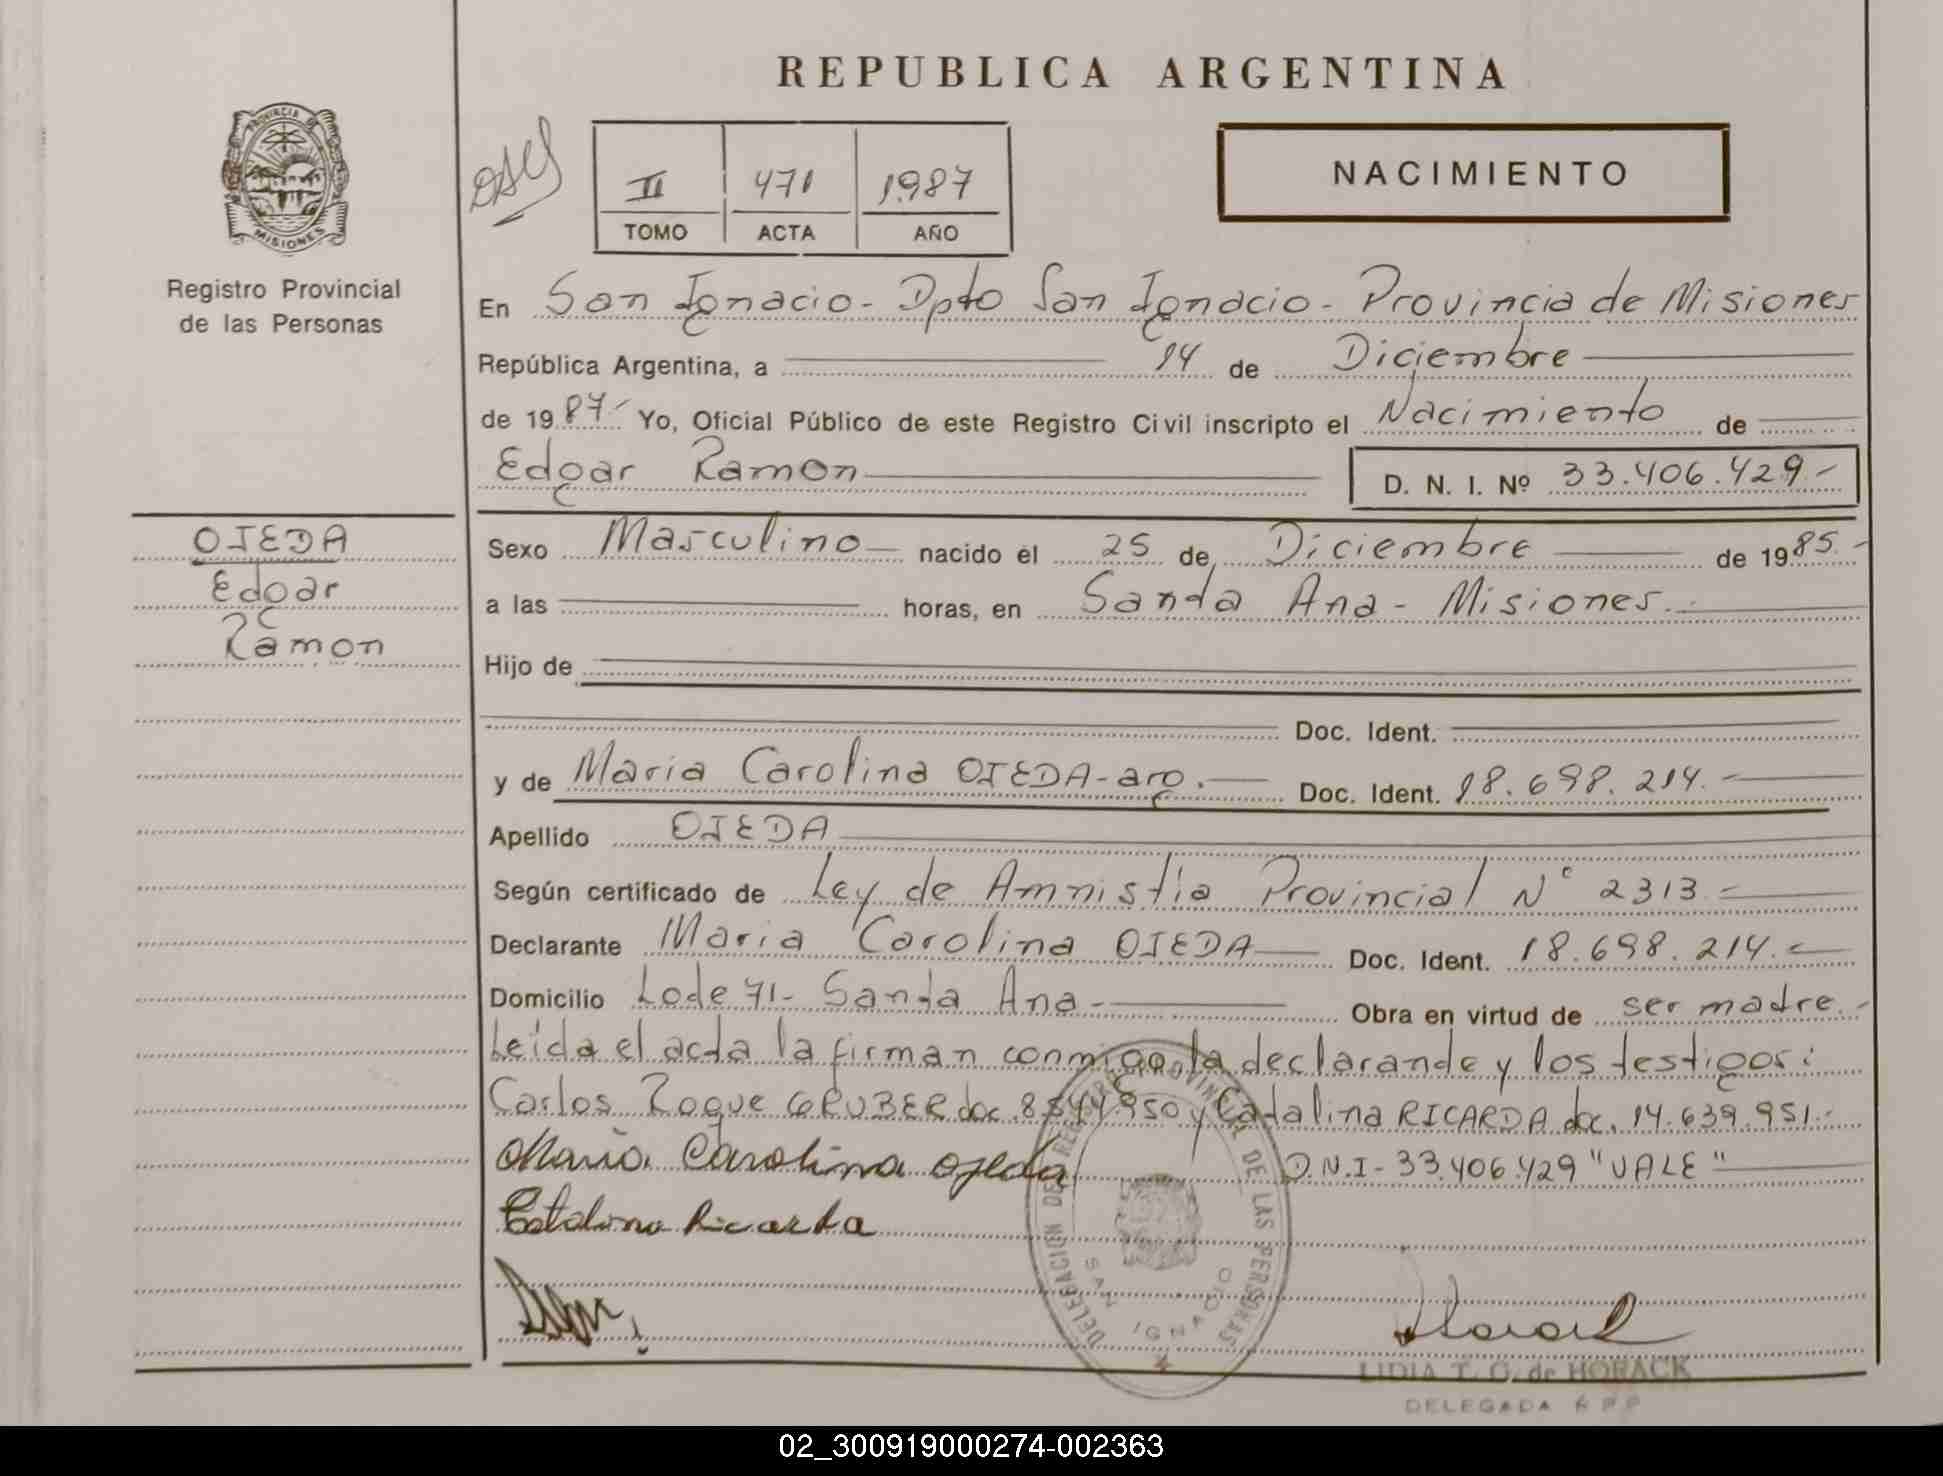 REPUBLICA ARGENTINA
PROVINCIA DE MISIONES
Registro Provincial
de las Personas
II 471 1.987
TOMO ACTA AÑO
NACIMIENTO
En San Ignacio - Dpto San Ignacio - Provincia de Misiones
República Argentina, a 14 de Diciembre
de 1987- Yo, Oficial Público de este Registro Civil inscripto el Nacimiento de
Edgar Ramon D. N. I. Nº 33.406.429.-
OJEDA
Edgar
Ramon
Sexo Masculino nacido el 25 de Diciembre de 1985.-
a las horas, en Santa Ana - Misiones.
Hijo de
Doc. Ident.
y de Maria Carolina OJEDA - arg. Doc. Ident. 18.698.214.-
Apellido OJEDA
Según certificado de Ley de Amnistia Provincial Nº 2313.-
Declarante Maria Carolina OJEDA Doc. Ident. 18.698.214.-
Domicilio Lote 71- Santa Ana.- Obra en virtud de ser madre.-
Leida el acta la firman conmigo la declarante y los testigos:
Carlos Roque GRUBER doc. 8.544.950 y Catalina RICARDA doc. 14.639.951.-
Maria Carolina Ojeda D.N.I - 33.406.429 "VALE"
Catalina Ricarda
DELEGACION DEL REGISTRO PROVINCIAL DE LAS PERSONAS
SAN IGNACIO
Horack
LIDIA T. G. de HORACK
DELEGADA R P P
02_300919000274-002363